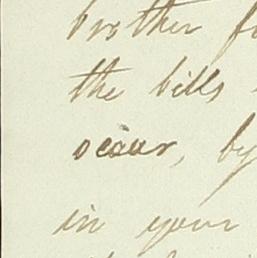 brother
the bills
occur, by
in your